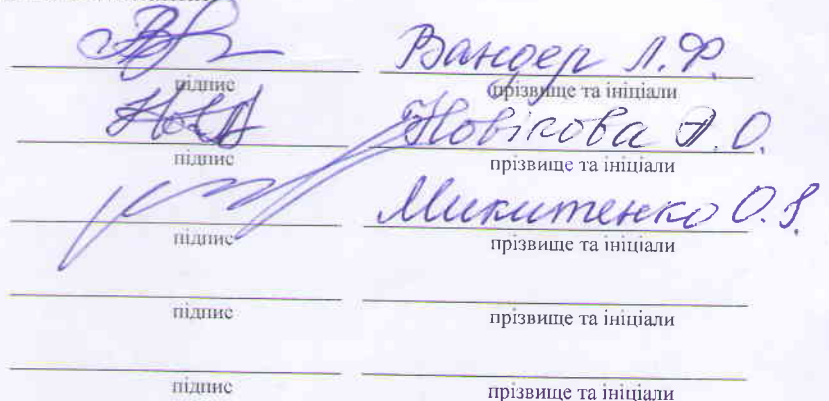 Вандер Л.Ф.
підпис прізвище та ініціали
Новікова А.О.
підпис прізвище та ініціали
Микитенко О.Я.
підпис прізвище та ініціали
підпис прізвище та ініціали
підпис прізвище та ініціали